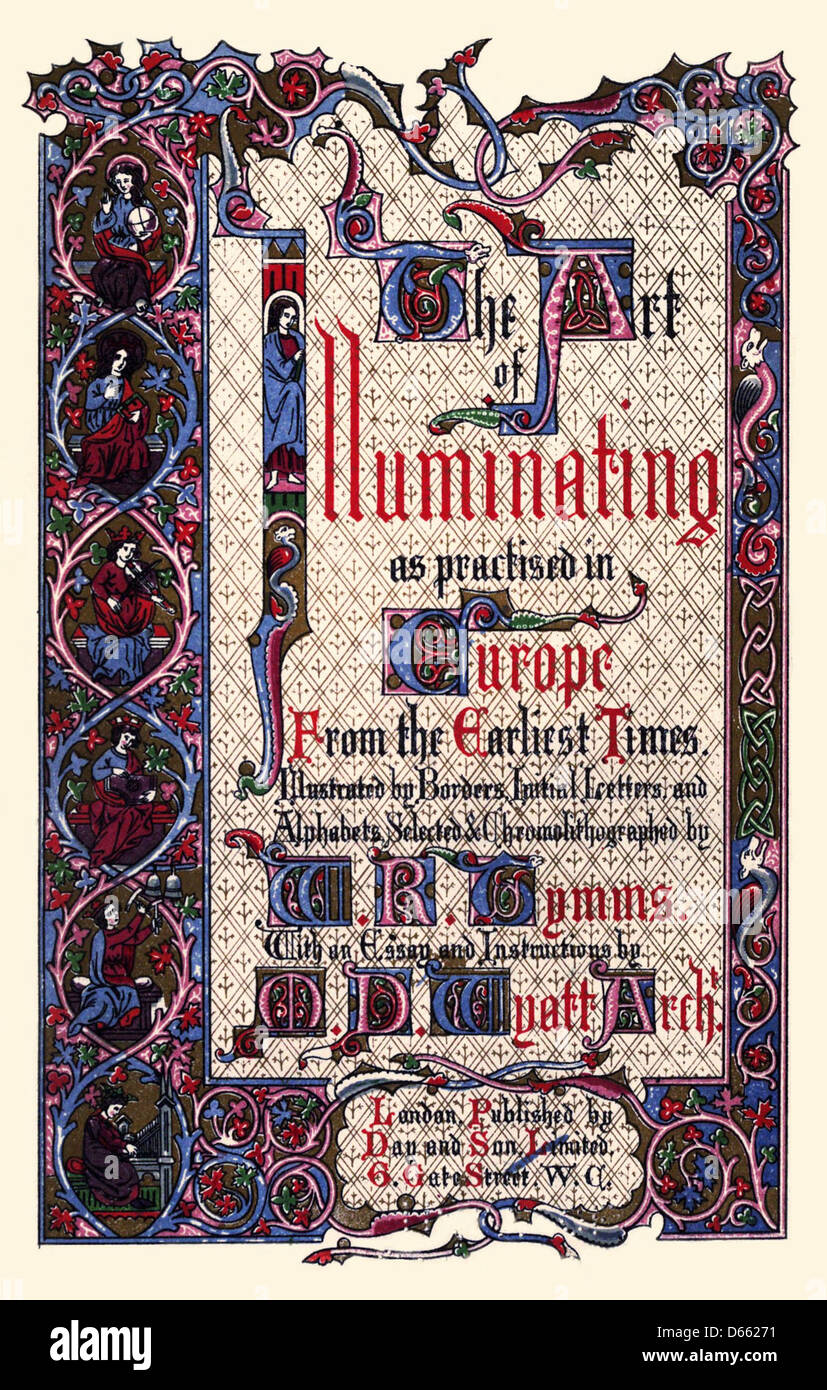 The Art
of
Illuminating
as practised in
Europe
From the Earliest Times.
Illustrated by Borders, Initial Letters, and
Alphabets, Selected & Chromolithographed by
W. R. Tymms.
With an Essay and Instructions by
M. D. Wyatt Archt.
London, Published by
Day and Son, Limited,
6. Gate Street, W. C.
alamy stock photo
alamy
D66271
www.alamy.com